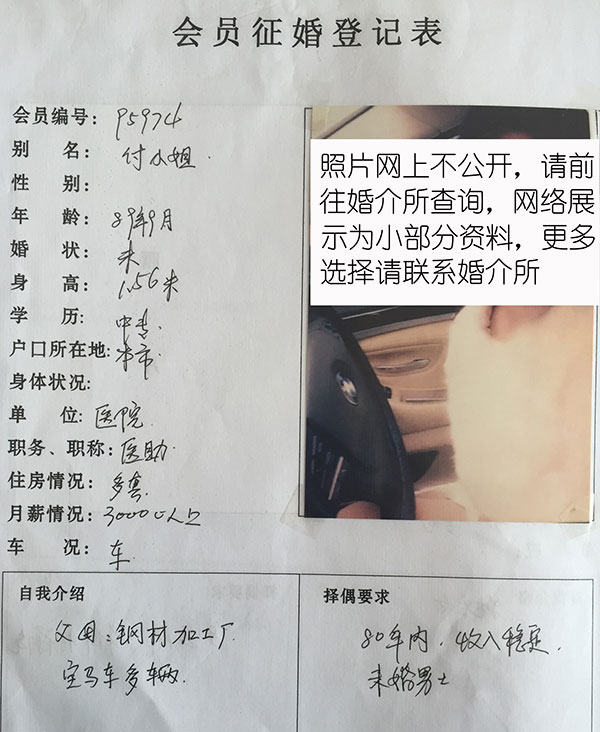 会员征婚登记表
会员编号: P5974
别 名: 付小姐.
性 别:
年 龄: 89年9月
婚 状: 未
身 高: 1.56米
学 历: 中专
户口所在地: 本市.
身体状况:
单 位: 医院.
职务、职称: 医助.
住房情况: 多套
月薪情况: 30000以上
车 况: 车.
照片网上不公开，请前
往婚介所查询，网络展
示为小部分资料，更多
选择请联系婚介所
自我介绍
父母：钢材加工厂.
宝马车多辆.
择偶要求
80年内，收入稳定.
未婚男士